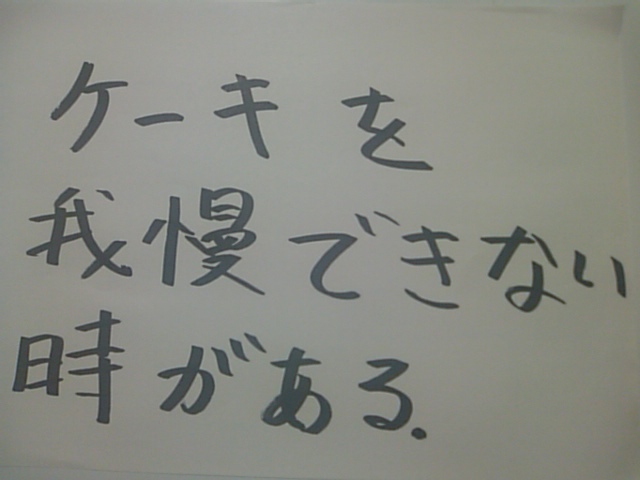 ケーキを
我慢できない
時がある.